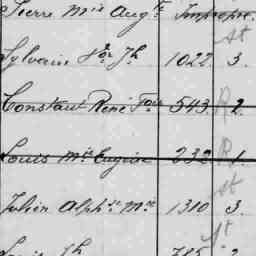 Pierre Mie Augte Impropre.
St
Sylvain Jh 1022. 3.
Constant René Fois 543. R 2.
Louis Mie Eugène 232. R 1.
St
Julien Alphse Mie 1310 3.
St
Jh 785 2